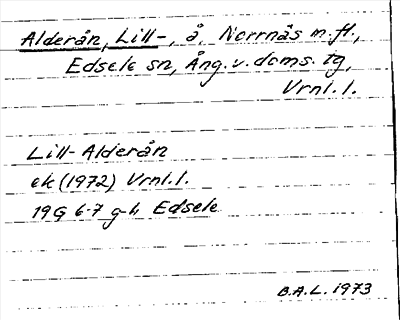 Alderån, Lill-, å, Norrnäs m.fl.,
Edsele sn, Ång. v. doms. tg,
Vrnl.l.
Lill-Alderån
ek (1972) Vrnl.l.
19G 6-7 g-h Edsele
B.A.L. 1973